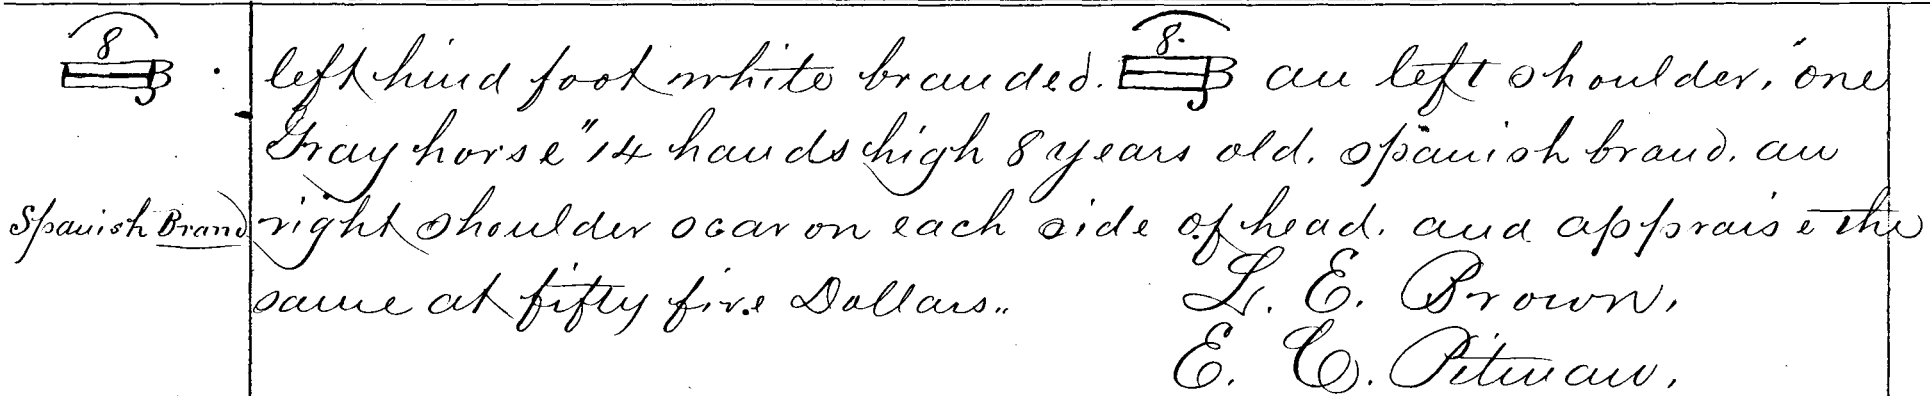 8 B
left hind foot white branded. 8. B an left shoulder, "one
Gray horse" 14 hands high 8 years old. Spanish brand. an
Spanish Brand
right shoulder scar on each side of head. and appraise the
same at fifty five Dollars..
L. E. Brown.
E. C. Pitman.